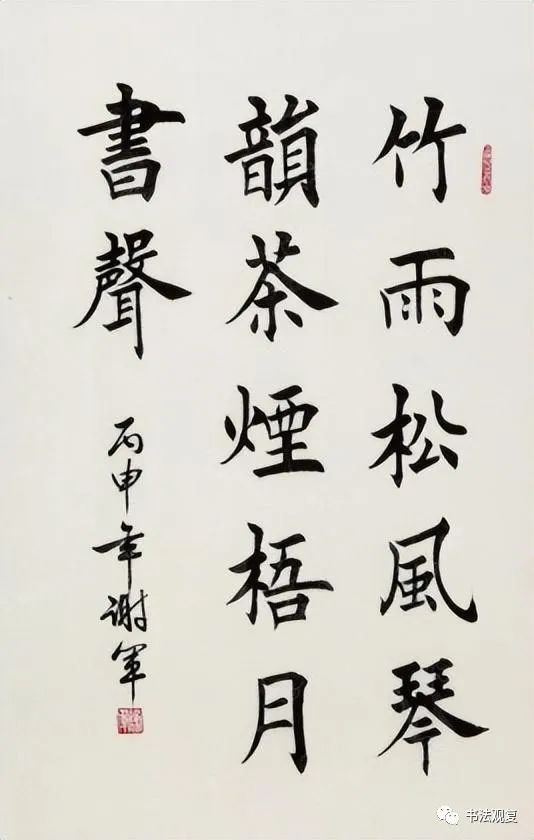 竹雨松風琴
韻茶煙梧月
書聲
丙申年謝軍
书法观复